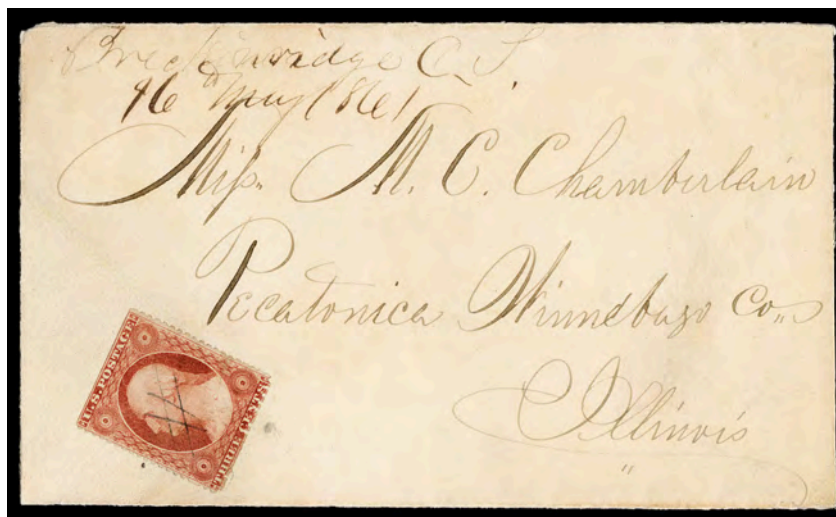 Breckinridge C. T.
16 May 1861
Miss. M. C. Chamberlain
Pecatonica Winnebago Co.
Illinois
U.S. POSTAGE
THREE CENTS